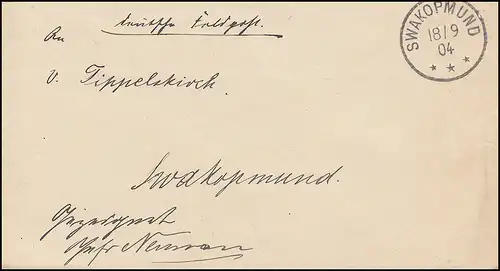 Deutsche Feldpost.
SWAKOPMUND
18/9
04
* * *
An
v. Tippelskirch
Swakopmund.
Neuman